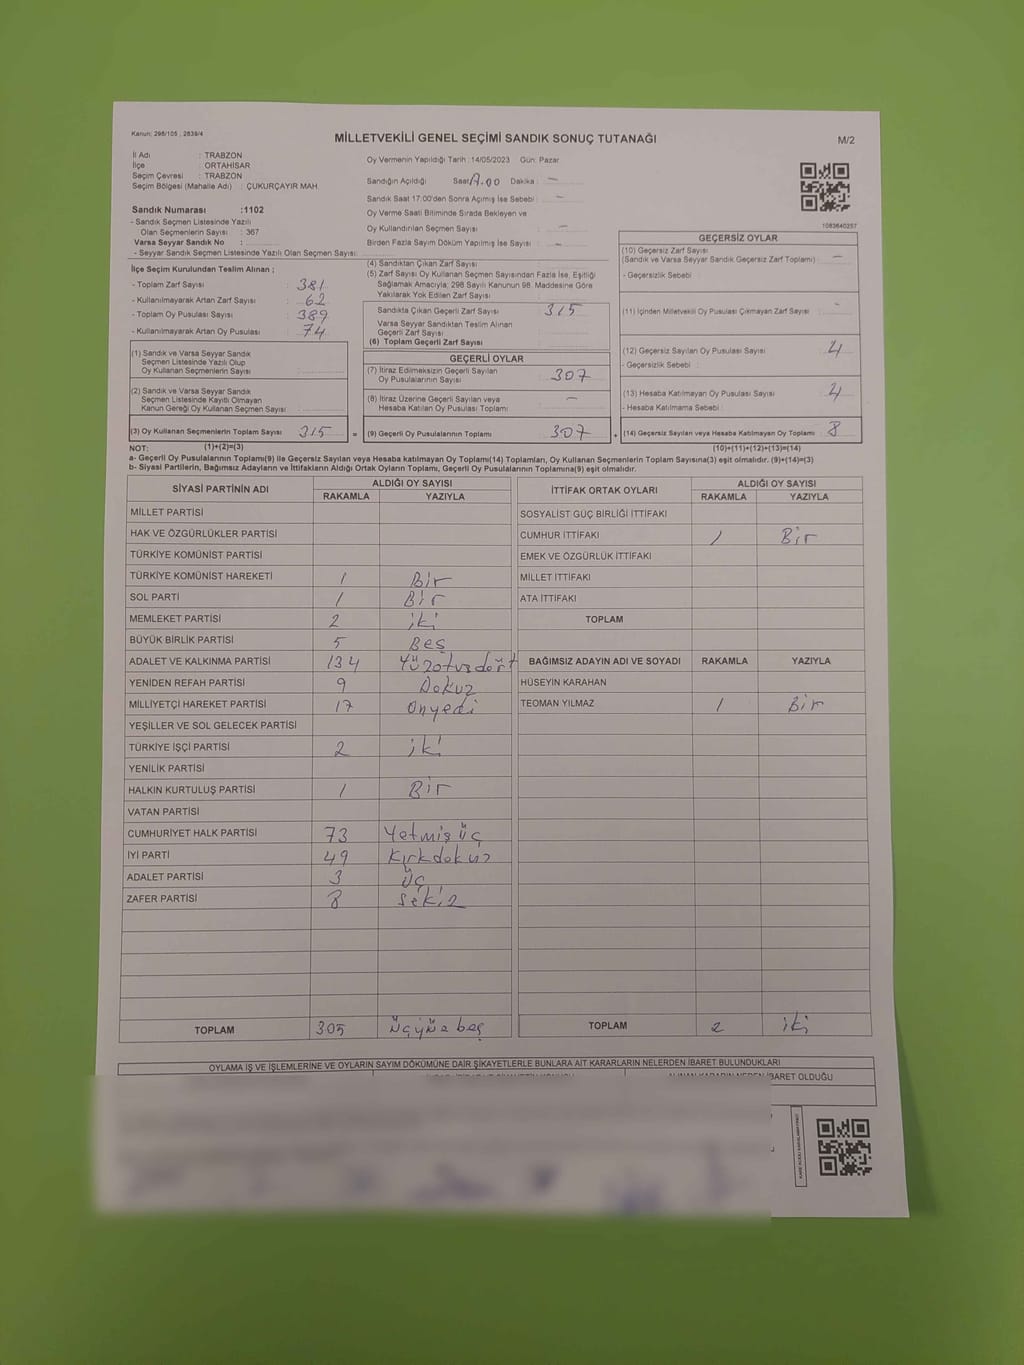 Kanun: 298/105 , 2839/4
MİLLETVEKİLİ GENEL SEÇİMİ SANDIK SONUÇ TUTANAĞI
M/2
İl Adı : TRABZON
İlçe : ORTAHİSAR
Seçim Çevresi : TRABZON
Seçim Bölgesi (Mahalle Adı) : ÇUKURÇAYIR MAH.
Sandık Numarası :1102
- Sandık Seçmen Listesinde Yazılı
Olan Seçmenlerin Sayısı : 367
Varsa Seyyar Sandık No :
- Seyyar Sandık Seçmen Listesinde Yazılı Olan Seçmen Sayısı:
Oy Vermenin Yapıldığı Tarih :14/05/2023 Gün: Pazar
Sandığın Açıldığı Saat Dakika : —
Sandık Saat 17:00'den Sonra Açılmış İse Sebebi : —
Oy Verme Saati Bitiminde Sırada Bekleyen ve
Oy Kullandırılan Seçmen Sayısı : —
Birden Fazla Sayım Döküm Yapılmış İse Sayısı : —
1083640257
İlçe Seçim Kurulundan Teslim Alınan ;
- Toplam Zarf Sayısı : 381
- Kullanılmayarak Artan Zarf Sayısı : 62
- Toplam Oy Pusulası Sayısı : 389
- Kullanılmayarak Artan Oy Pusulası : 74
(1) Sandık ve Varsa Seyyar Sandık
Seçmen Listesinde Yazılı Olup
Oy Kullanan Seçmenlerin Sayısı :
(2) Sandık ve Varsa Seyyar Sandık
Seçmen Listesinde Kayıtlı Olmayan
Kanun Gereği Oy Kullanan Seçmen Sayısı :
(3) Oy Kullanan Seçmenlerin Toplam Sayısı : 315 =
(1)+(2)=(3)
(4) Sandıktan Çıkan Zarf Sayısı :
(5) Zarf Sayısı Oy Kullanan Seçmen Sayısından Fazla İse, Eşitliği
Sağlamak Amacıyla; 298 Sayılı Kanunun 98. Maddesine Göre
Yakılarak Yok Edilen Zarf Sayısı :
Sandıkta Çıkan Geçerli Zarf Sayısı : 315
Varsa Seyyar Sandıktan Teslim Alınan
Geçerli Zarf Sayısı :
(6) Toplam Geçerli Zarf Sayısı :
GEÇERLİ OYLAR
(7) İtiraz Edilmeksizin Geçerli Sayılan
Oy Pusulalarının Sayısı : 307
(8) İtiraz Üzerine Geçerli Sayılan veya
Hesaba Katılan Oy Pusulası Toplamı : —
(9) Geçerli Oy Pusulalarının Toplamı : 307 +
GEÇERSİZ OYLAR
(10) Geçersiz Zarf Sayısı
(Sandık ve Varsa Seyyar Sandık Geçersiz Zarf Toplamı) : —
- Geçersizlik Sebebi :
(11) İçinden Milletvekili Oy Pusulası Çıkmayan Zarf Sayısı : -
(12) Geçersiz Sayılan Oy Pusulası Sayısı : 4
- Geçersizlik Sebebi :
(13) Hesaba Katılmayan Oy Pusulası Sayısı : 4
- Hesaba Katılmama Sebebi :
(14) Geçersiz Sayılan veya Hesaba Katılmayan Oy Toplamı : 8
(10)+(11)+(12)+(13)=(14)
NOT:
a- Geçerli Oy Pusulalarının Toplamı(9) ile Geçersiz Sayılan veya Hesaba katılmayan Oy Toplamı(14) Toplamları, Oy Kullanan Seçmenlerin Toplam Sayısına(3) eşit olmalıdır. (9)+(14)=(3)
b- Siyasi Partilerin, Bağımsız Adayların ve İttifakların Aldığı Ortak Oyların Toplamı, Geçerli Oy Pusulalarının Toplamına(9) eşit olmalıdır.
SİYASİ PARTİNİN ADI ALDIĞI OY SAYISI
RAKAMLA YAZIYLA
MİLLET PARTİSİ
HAK VE ÖZGÜRLÜKLER PARTİSİ
TÜRKİYE KOMÜNİST PARTİSİ
TÜRKİYE KOMÜNİST HAREKETİ 1 Bir
SOL PARTİ 1 Bir
MEMLEKET PARTİSİ 2 iki
BÜYÜK BİRLİK PARTİSİ 5 Beş
ADALET VE KALKINMA PARTİSİ 134 Yüzotuzdört
YENİDEN REFAH PARTİSİ 9 Dokuz
MİLLİYETÇİ HAREKET PARTİSİ 17 onyedi
YEŞİLLER VE SOL GELECEK PARTİSİ
TÜRKİYE İŞÇİ PARTİSİ 2 iki
YENİLİK PARTİSİ
HALKIN KURTULUŞ PARTİSİ 1 Bir
VATAN PARTİSİ
CUMHURİYET HALK PARTİSİ 73 Yetmişüç
İYİ PARTİ 49 Kırkdokuz
ADALET PARTİSİ 3 üç
ZAFER PARTİSİ 8 sekiz
TOPLAM 305 üçyüzbeş
İTTİFAK ORTAK OYLARI ALDIĞI OY SAYISI
RAKAMLA YAZIYLA
SOSYALİST GÜÇ BİRLİĞİ İTTİFAKI
CUMHUR İTTİFAKI 1 Bir
EMEK VE ÖZGÜRLÜK İTTİFAKI
MİLLET İTTİFAKI
ATA İTTİFAKI
TOPLAM
BAĞIMSIZ ADAYIN ADI VE SOYADI RAKAMLA YAZIYLA
HÜSEYİN KARAHAN
TEOMAN YILMAZ 1 Bir
TOPLAM 2 iki
OYLAMA İŞ VE İŞLEMLERİNE VE OYLARIN SAYIM DÖKÜMÜNE DAİR ŞİKAYETLERLE BUNLARA AİT KARARLARIN NELERDEN İBARET BULUNDUKLARI
ALINAN KARARIN NEDEN İBARET OLDUĞU